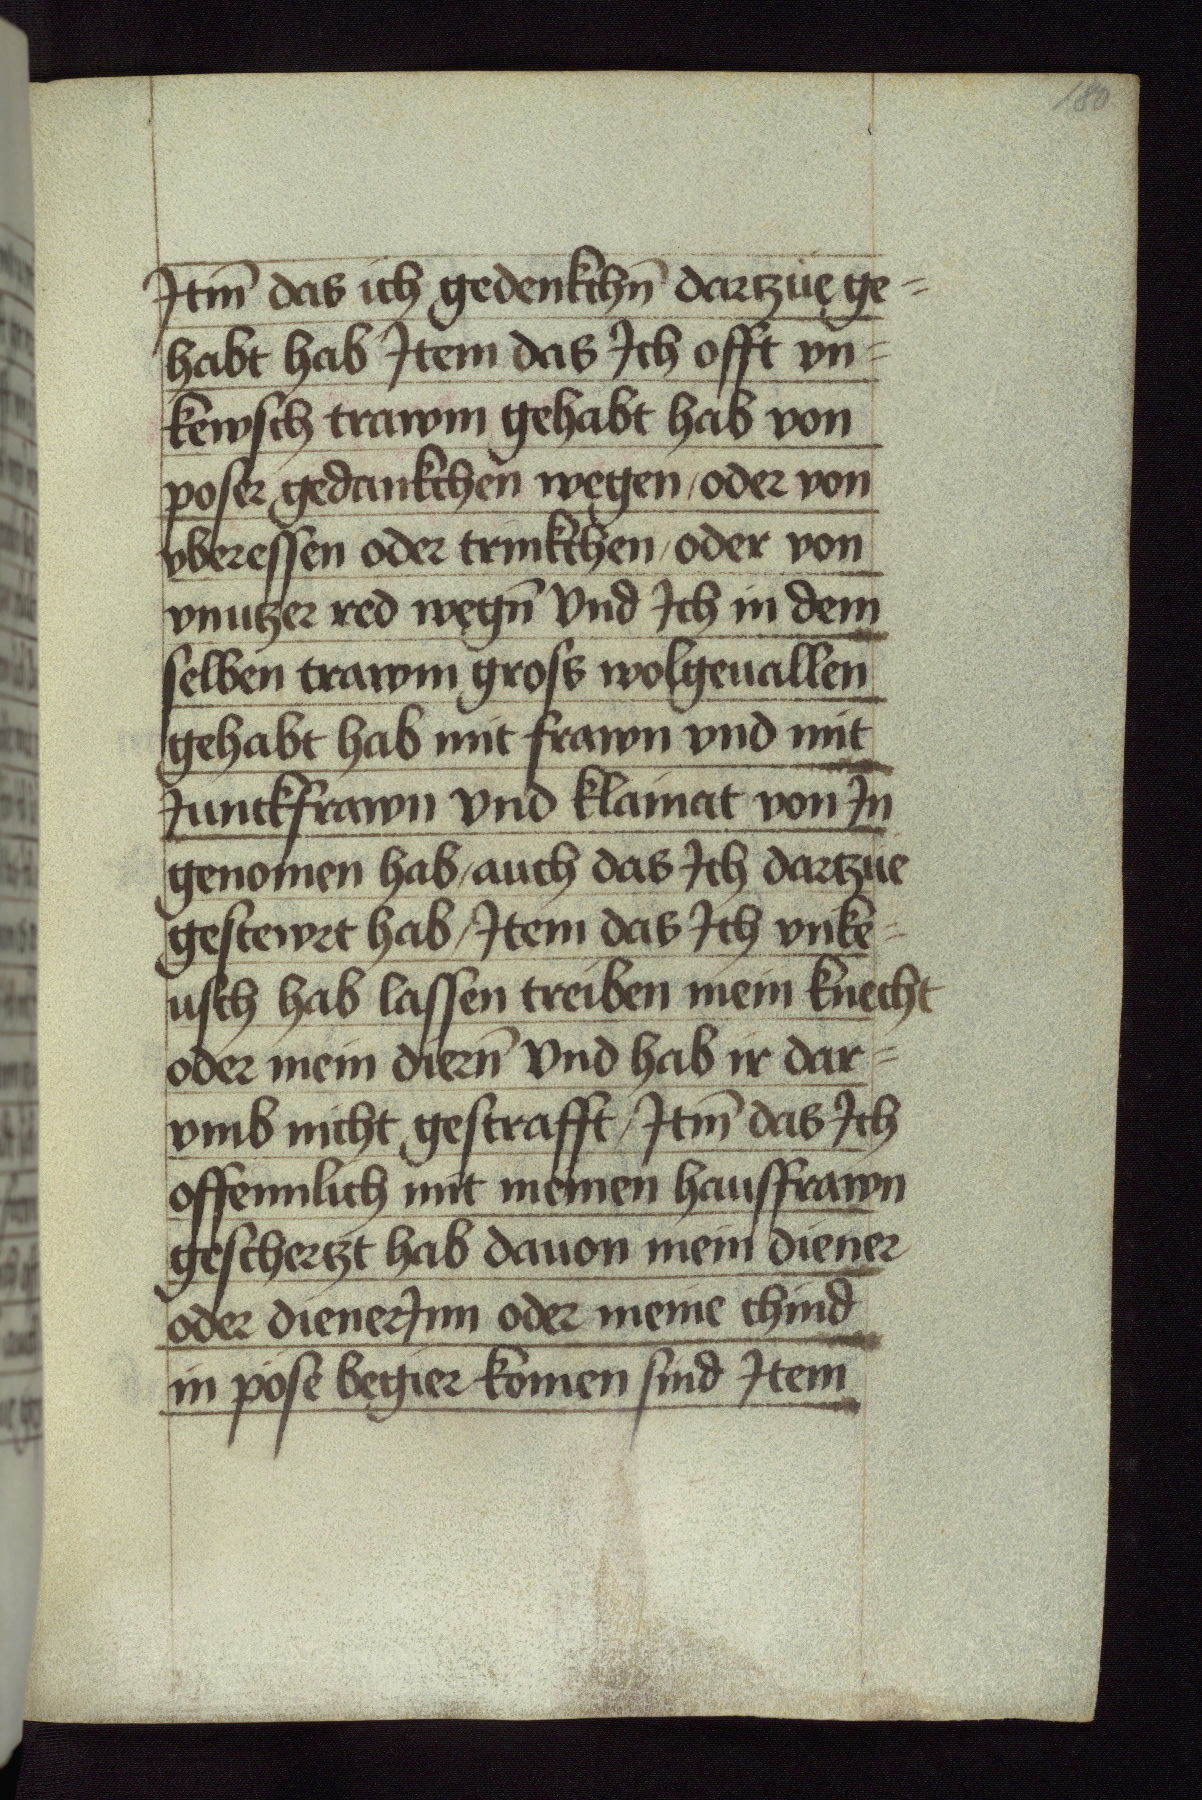 180
Jtm̄ das ich gedenkchn̄ dartzue ge=
habt hab Jtem das Jch offt vn=
kewsch trawm gehabt hab von
poser gedankchen wegen / oder von
vberessen oder trinkchen / oder von
vnutzer red wegn̄ Vnd Jch in dem
selben trawm gross wolgeuallen
gehabt hab mit frawn vnd mit
Junckfrawn vnd klainat von Jn
genomen hab / auch das Jch dartzue
gestewrt hab / Jtem das Jch vnke=
usch hab lassen treiben mein knecht
oder mein diern̄ Vnd hab ir dar=
vmb nicht gestrafft / Jtm̄ das Jch
offennlich mit meinen hausfrawn
geschertzt hab dauon mein diener
oder dienerJnn oder meine chind
in pöse begier komen sind Jtem